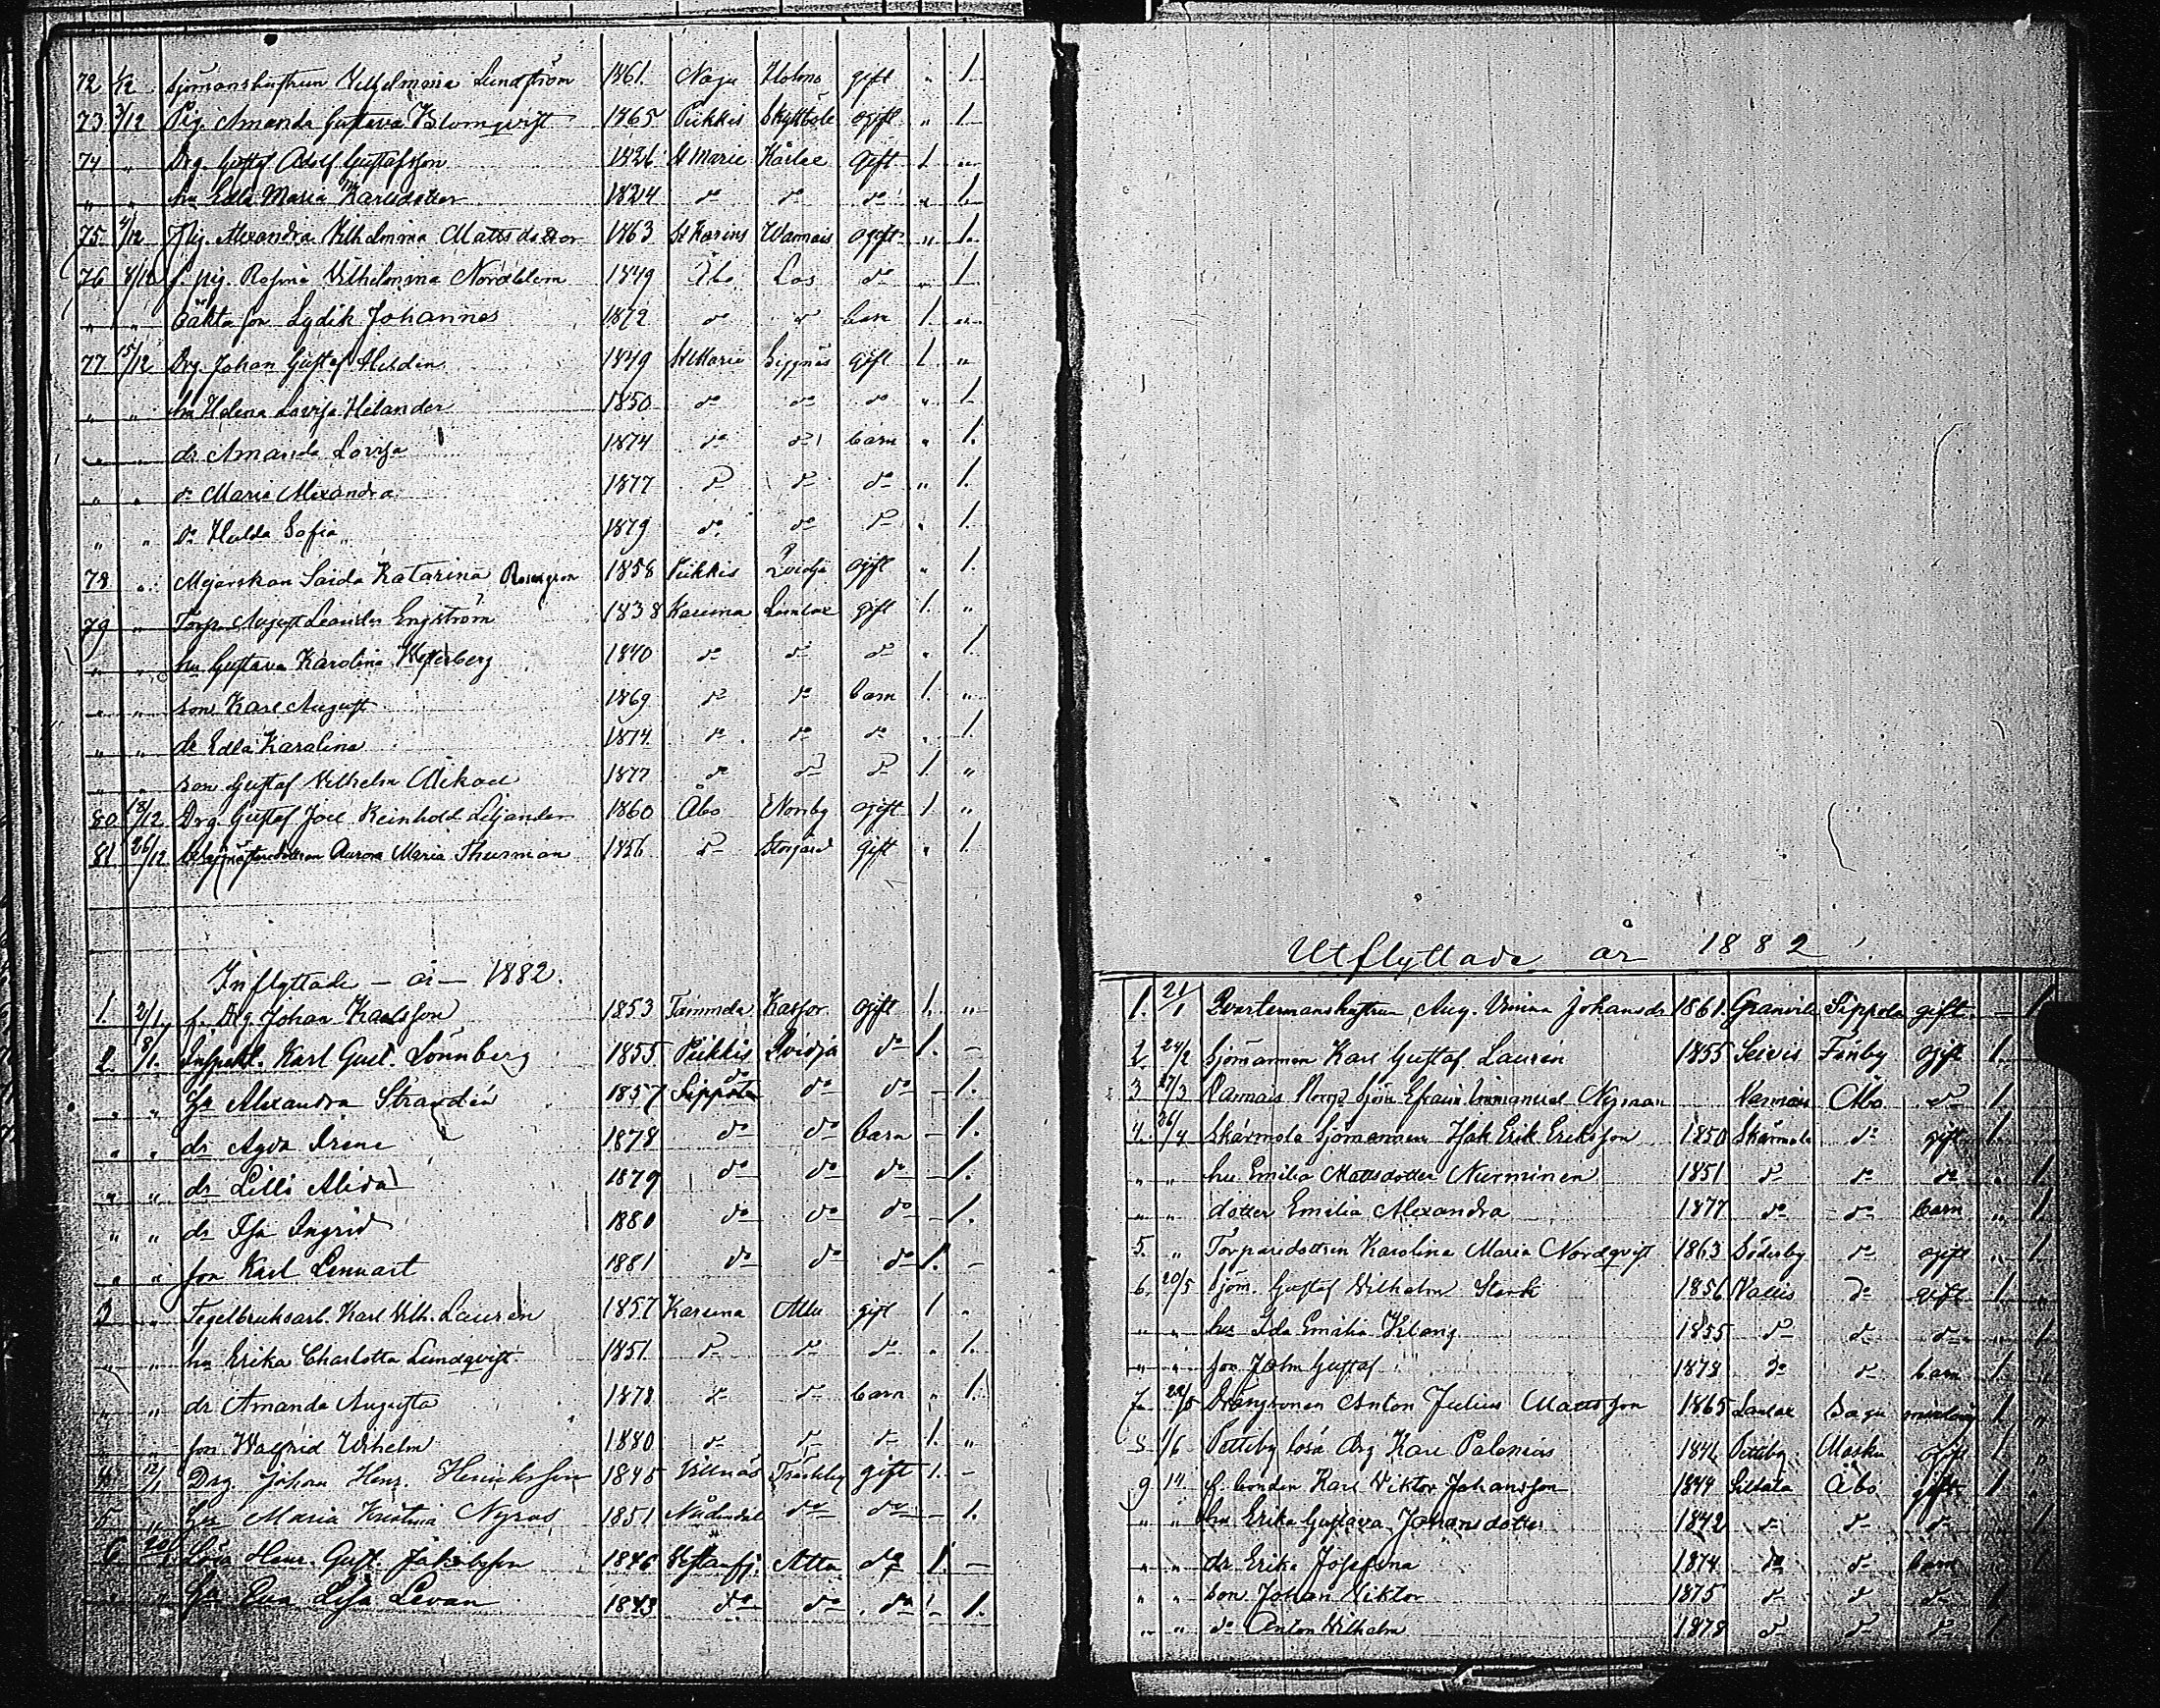 72 1/12 Sjömanshustrun Vilhelmina Lundström 1861 Nagu Holmo gift " 1.
73 3/12 Pig. Amanda Gustava Blomqvist 1865 Piikkis Skyttböle ogift " 1
74 " Drg. Gustaf Adolf Gustafsson 1826 St Marie gift 1 "
" " hu Edla Maria Karlsdotter 1824 do do do " 1
75. 4/12 Pig. Alexandra Vilhelmina Mattsdotter 1863 St Karins Warnais ogift " 1.
76 9/12 f. pig. Rosina Vilhelmina Nordblom 1849 Åbo Lös do " 1
" " oäkta son Lydik Johannes 1872 do do barn 1. "
77 15/12 Drg. Johan Gustaf Heldén 1849 St Marie Biggnäs gift 1 "
" " hu Helena Lovisa Helander 1850 do do do " 1
" " dr Amanda Lovisa 1874 do do barn " 1.
" " do Maria Alexandra 1877 do do do " 1.
" " do Hulda Sofia 1879 do do do " 1.
78 " Mejerskan Saida Katarina Rosengren 1858 Piikkis Qvidja ogift " 1.
79 " Torp. August Leander Engström 1838 Karuna Lamlax gift 1. "
" " hu Gustava Karolina Westerberg 1840 do do do " 1
" " son Karl August 1869 do do barn 1. "
" " dr Edla Karolina 1874 do do do " 1
" " son Gustaf Vilhelm Mikael 1877 do do do 1. "
80 18/12 Drg. Gustaf Joel Reinhold Liljander 1860 Åbo Norrby ogift 1 "
81 26/12 Aurora Maria Thurman 1856 do Storgård gift " 1
Inflyttade – år – 1882.
1. 2/1 f. Drg. Johan Karlsson 1853 gift 1. "
2. 8/1. Inspekt. Karl Gust. Lönnberg 1855 Piikkis Qvidja do 1. –
" " hu Alexandra Strandén 1857 do do – 1.
" " dr Agda Irene 1878 do do barn – 1.
" " dr Lilli Alida 1879 do do do – 1.
" " dr Isa Ingrid 1880 do do do – 1.
" " son Karl Lennart 1881 do do do 1. –
3 " Tegelbruksarb. Karl Vilh. Laurén 1857 Karuna Attu gift 1 "
" " hu Erika Charlotta Lundqvist 1851 do do do " 1.
" " dr Amanda Augusta 1878 do do barn " 1.
" " son Walfrid Vilhelm 1880 do do do 1. "
4 12/1 Drg. Johan Henr. Henriksson 1845 Villnäs gift 1. –
5 " hu Maria Kristina Nyroos 1851 Nådendal do do – 1.
6 20/1 Lösa Henr. Gust. Jakobsson 1846 Attu do 1. –
" " hu Eva Lisa Levan 1843 do do do – 1.
Utflyttade år 1882
1. 21/1 Qvartermanshustrun Aug. Vivina Johansdr 1861. Granvik gift – 1
2 24/2 Sjömannen Karl Gustaf Laurén 1855 Seivis Finby ogift 1. "
3 27/3 Efraim Immanuel Nyman Varnais Åbo do 1.
4. 26/4 Skärmola Sjömannen Isak Erik Eriksson 1850 Skärmola do gift 1.
" " hu Emilia Mattsdotter Nurminen 1851 do do do " 1
" " dotter Emilia Alexandra 1877 do do barn " 1
5. " Torparedottren Karolina Maria Nordqvist 1863 Söderby do ogift " 1
6. 20/5 Sjöm. Gustaf Vilhelm Stark 1856 do gift 1. "
" " hu Ida Emilia Klang 1855 do do do " 1
" " son John Gustaf 1878 do do barn 1. "
7 22/5 Anton Julius Mattsson 1865 Lanlax Sagu 1. "
8 1/6 Pettby lösa drg Karl Palenius Pettby Masku ogift 1 "
9 14 f. bonden Karl Viktor Johansson 1844 Åbo gift 1 "
" " hu Erika Gustava Johansdotter 1842 do do do " 1
" " dr Erika Josefina 1874 do do barn " 1
" " son Johan Viktor 1875 do do do 1
" " do Anton Vilhelm 1878 do do do 1